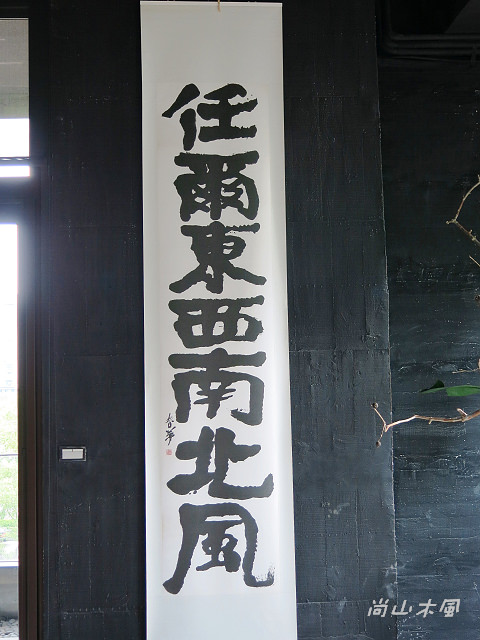 任爾東西南北風
尚山木風